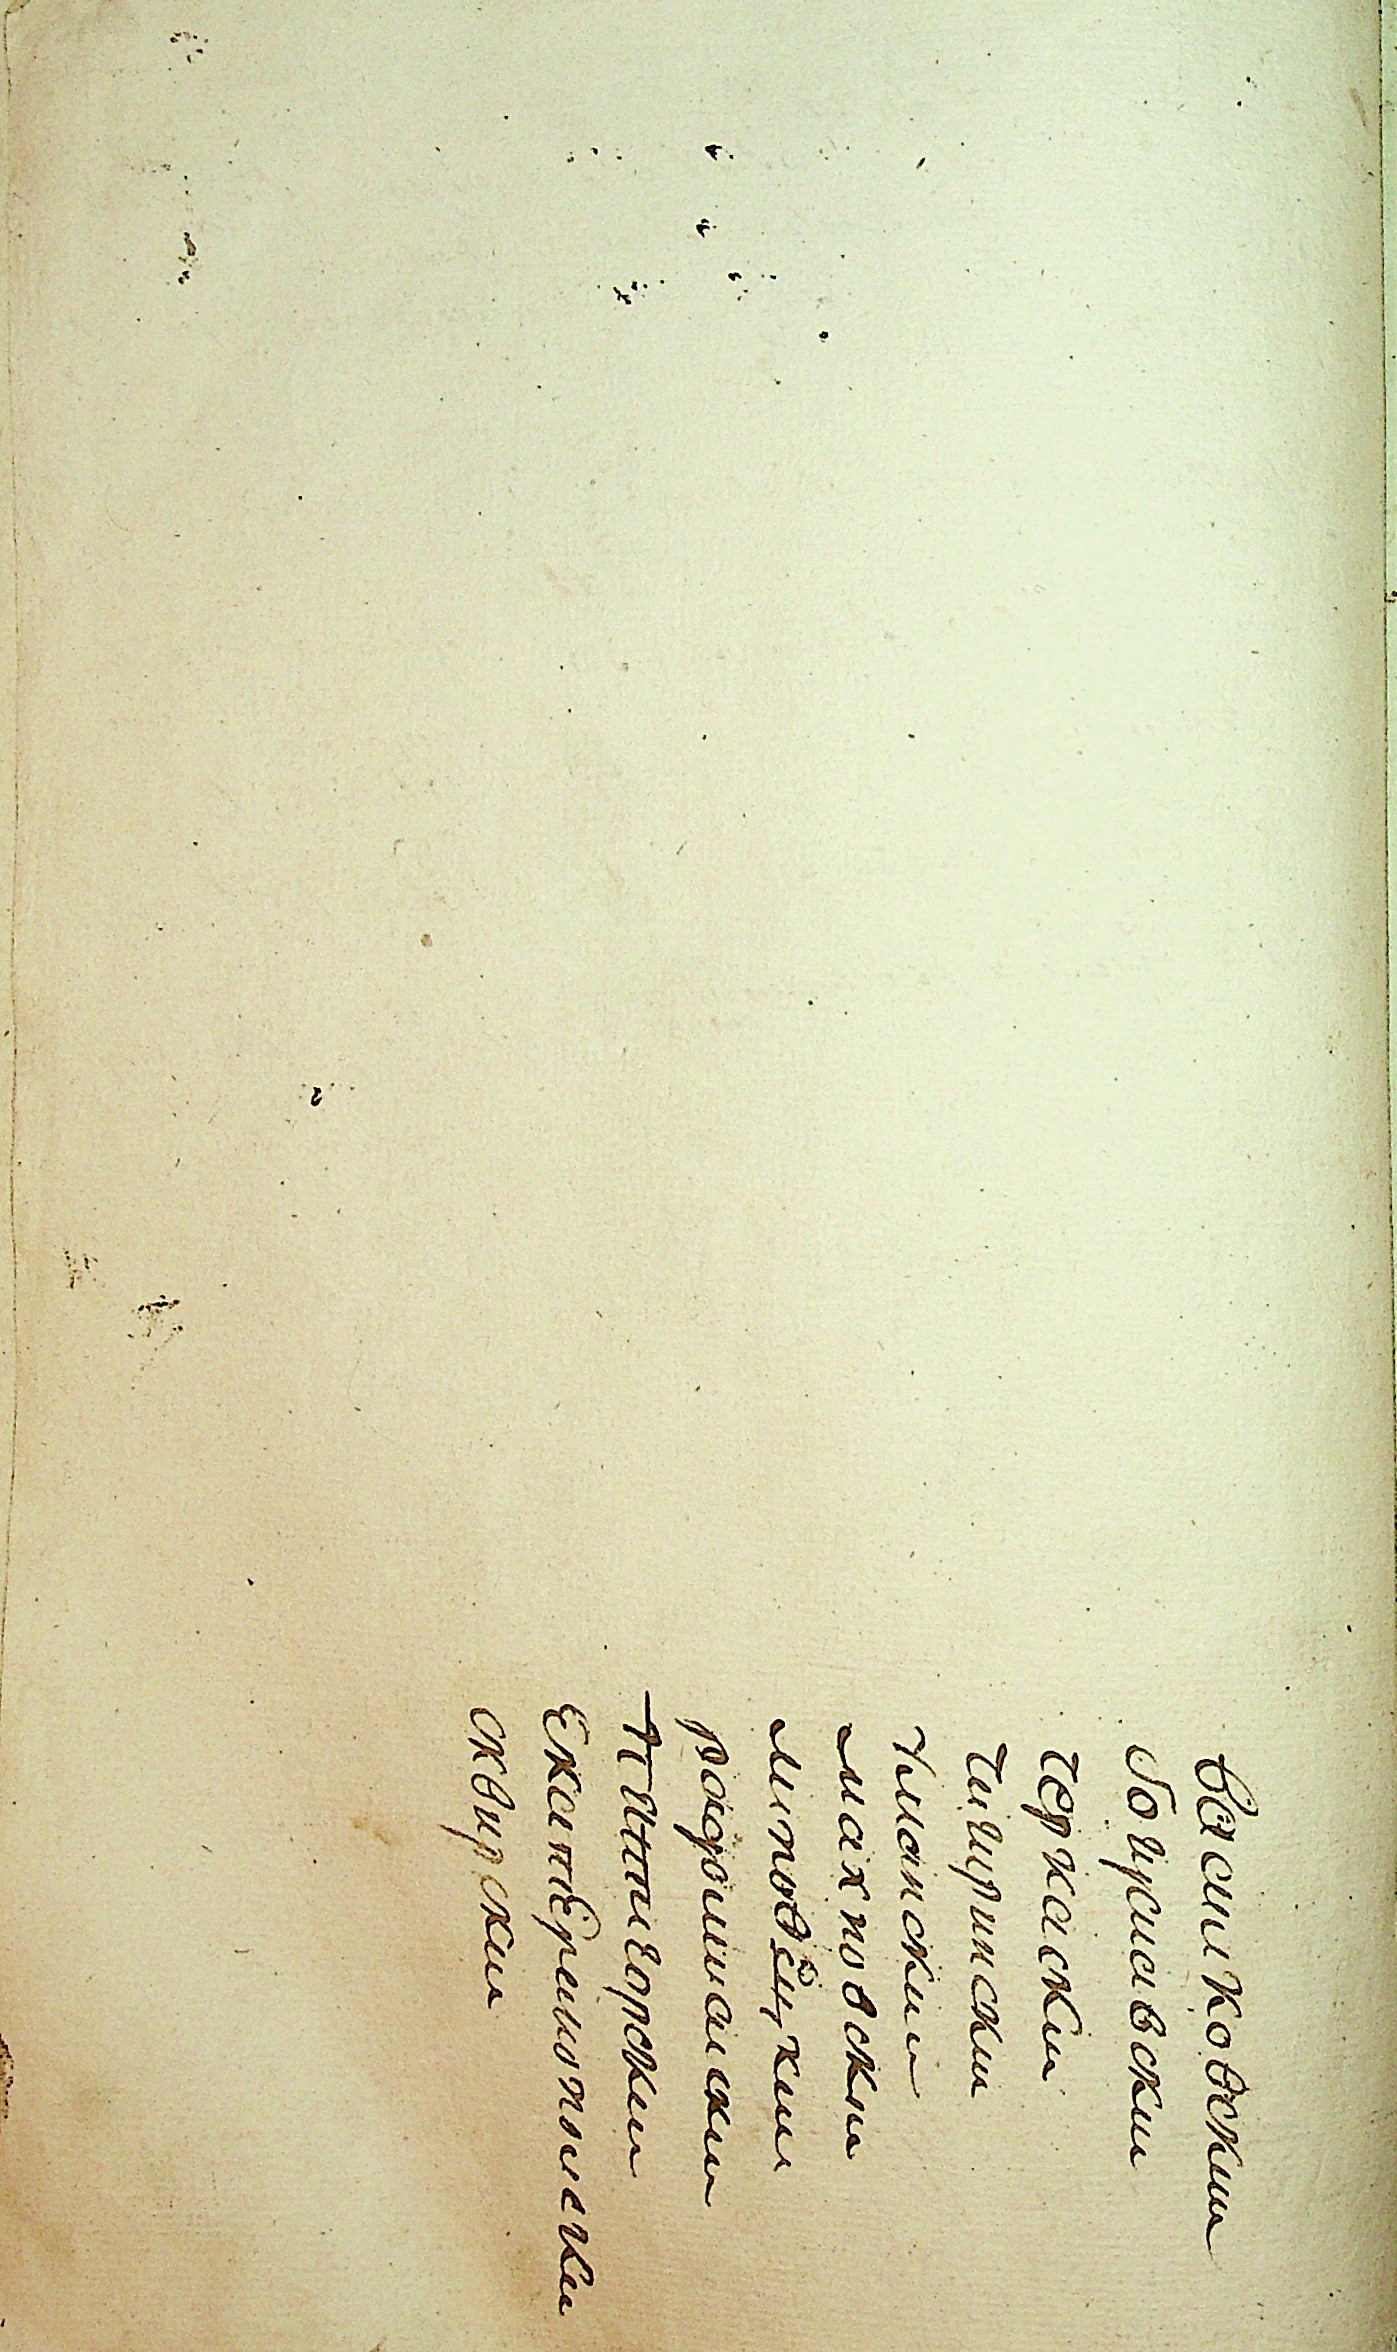 Васильковскии
богуславскии
черкаскии
чигиринскии
Уманскии
махновскии
липовецкии
радомысльскии
Пятигорскии
Екатеринопольскии
сквирскии